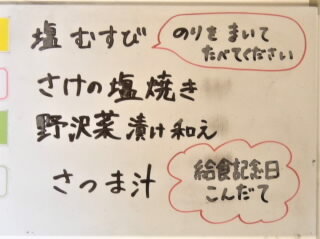 塩むすび
のりをまいて
たべてください
さけの塩焼き
野沢菜漬け和え
さつま汁
給食記念日
こんだて